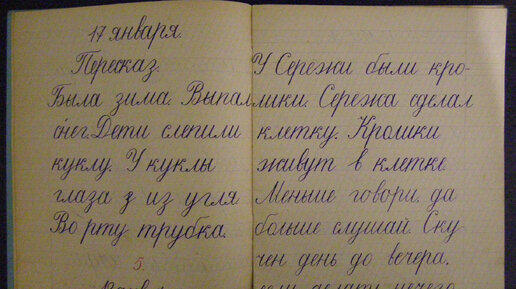 17 января.
Пересказ.
Была зима. Выпал
снег. Дети слепили
куклу. У куклы
глаза из угля
Во рту трубка.
5.
У Сережи были кро-
лики. Сережа сделал
клетку. Кролики
живут в клетке.
Меньше говори, да
больше слушай. Ску
чен день до вечера,
если делать нечего